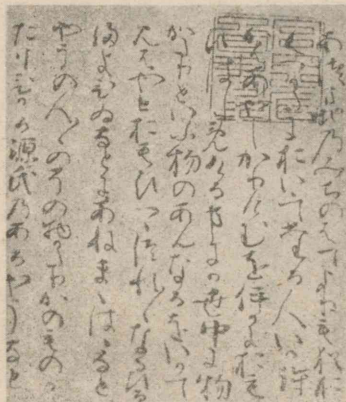 あつま地の道のはてよりも猶お
くつかたにおいいてたる人いか許
かはあやしかりけむをいかにおも
ひはしめける事にか世中に物
かたりといふ物のあんなるをいかて
見はやとおもひつゝつれ〳〵なるひる
ま よひゐなとにあねまゝはゝなと
やうの人〳〵のその物かたりかのものか
たりひかる源氏のあるやうなと